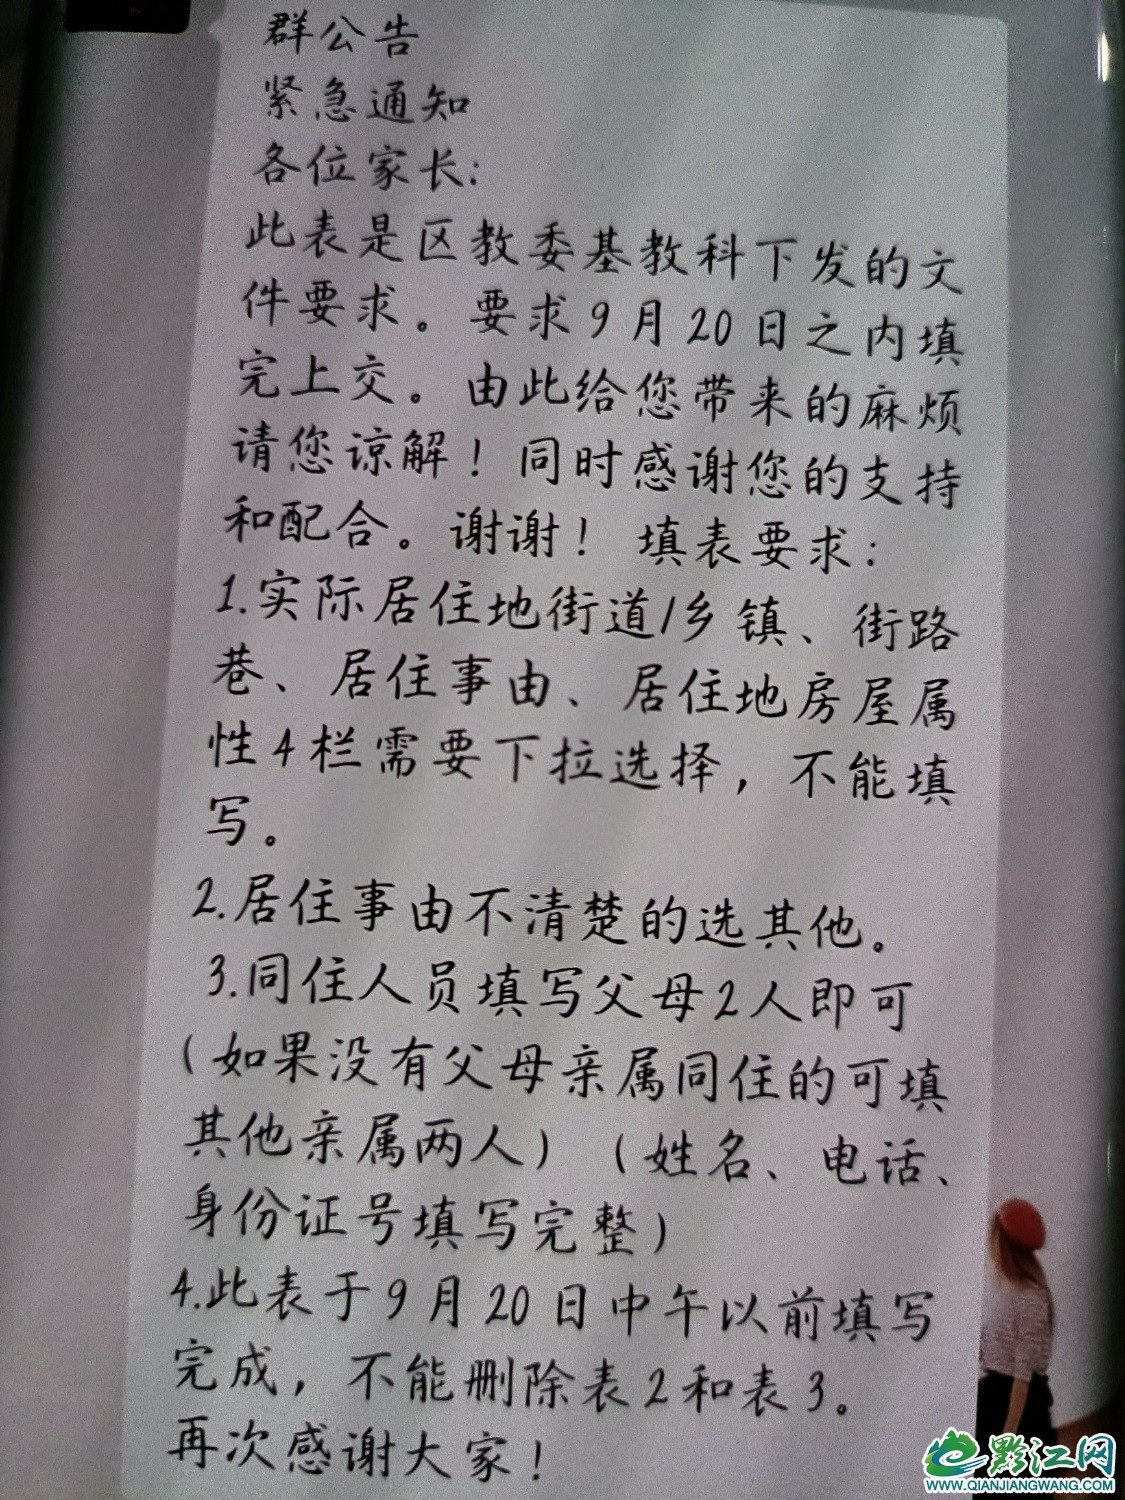 群公告
紧急通知
各位家长:
此表是区教委基教科下发的文
件要求。要求9月20日之内填
完上交。由此给您带来的麻烦
请您谅解！同时感谢您的支持
和配合。谢谢！填表要求：
1.实际居住地街道/乡镇、街路
巷、居住事由、居住地房屋属
性4栏需要下拉选择，不能填
写。
2.居住事由不清楚的选其他。
3.同住人员填写父母2人即可
（如果没有父母亲属同住的可填
其他亲属两人）（姓名、电话、
身份证号填写完整）
4.此表于9月20日中午以前填写
完成，不能删除表2和表3。
再次感谢大家！
黔江网
WWW.QIANJIANGWANG.COM